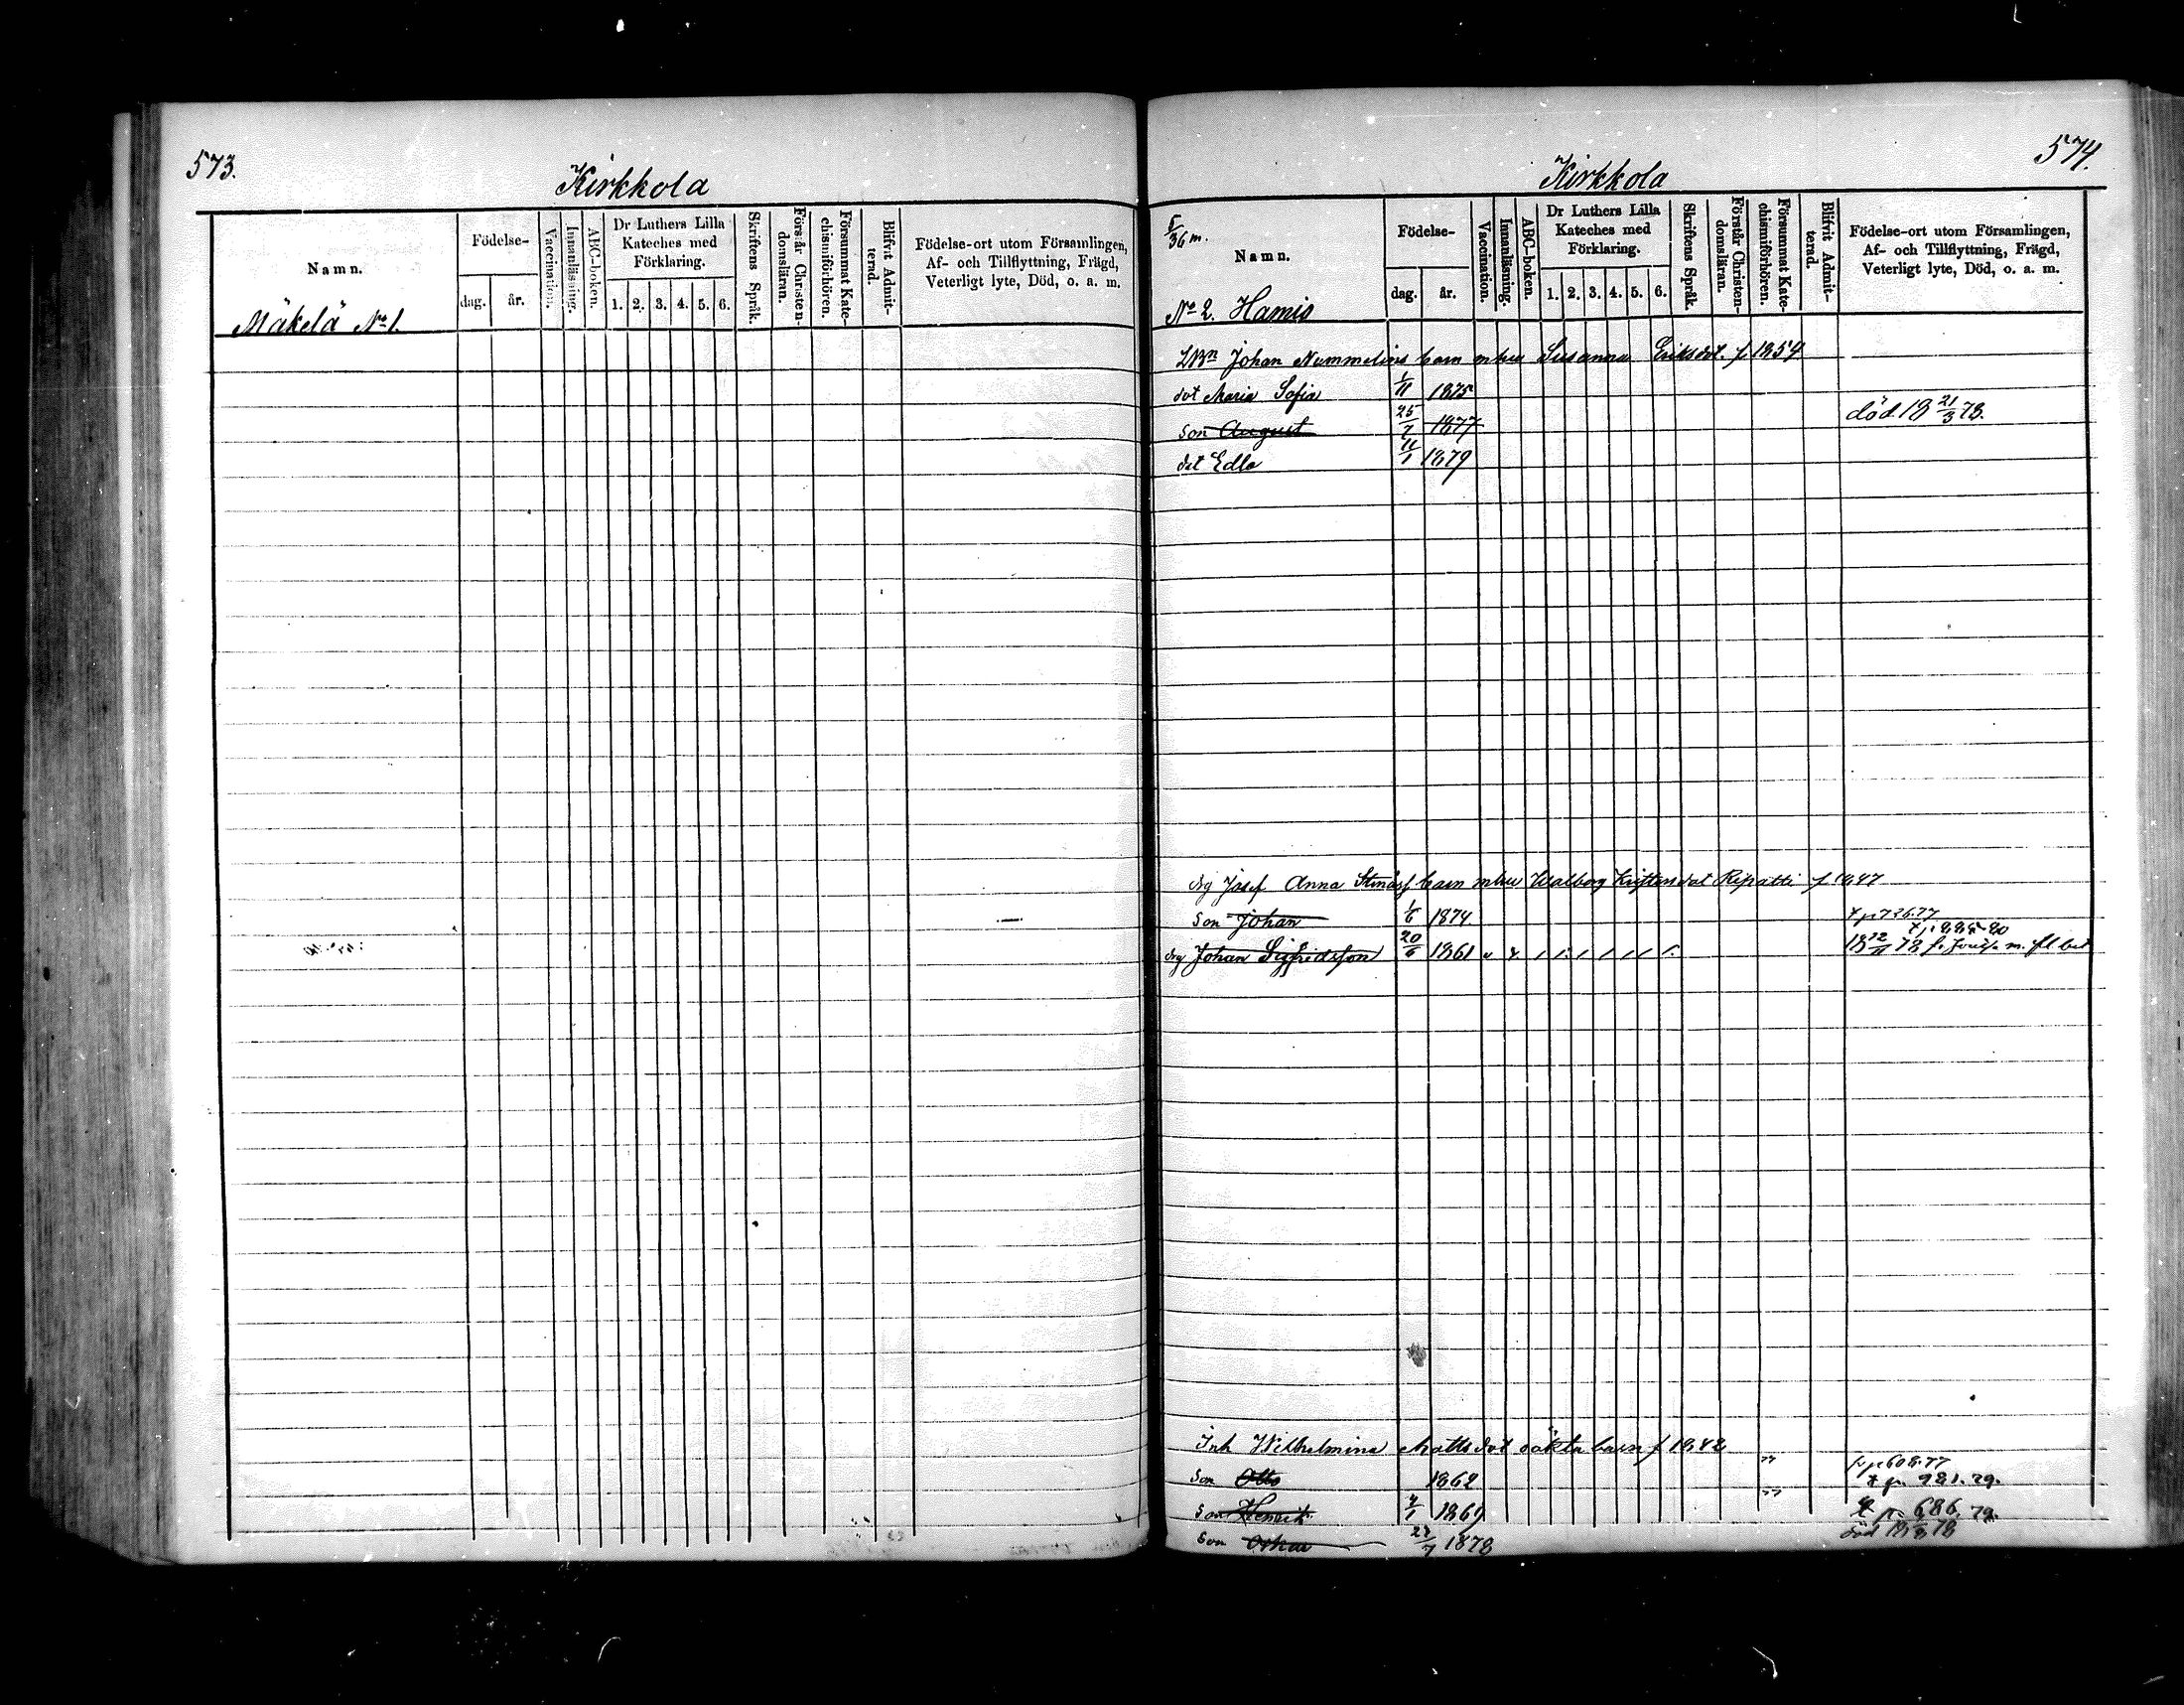 573.
Kirkkola
Namn.
Födelse-
dag. år.
Vaccination.
Innanläsning.
ABC-boken.
Dr Luthers Lilla
Kateches med
Förklaring.
1. 2. 3. 4. 5. 6.
Skriftens Språk.
Förstår Christen-
domsläran.
Försummat Kate-
chismiförhören.
Blifvit Admit-
terad.
Födelse-ort utom Församlingen,
Af- och Tillflyttning, Frägd,
Veterligt lyte, Död, o. a. m.
Mäkelä No 1.
574.
Kirkkola
5/36 m.
Namn.
Födelse-
dag. år.
Vaccination.
Innanläsning.
ABC-boken.
Dr Luthers Lilla
Kateches med
Förklaring.
1. 2. 3. 4. 5. 6.
Skriftens Språk.
Förstår Christen-
domsläran.
Försummat Kate-
chismiförhören.
Blifvit Admit-
terad.
Födelse-ort utom Församlingen,
Af- och Tillflyttning, Frägd,
Veterligt lyte, Död, o. a. m.
No 2. Hamio
Johan Nummelins barn m hu Susanna Eriksdot. f. 1854
dot Maria Sofia 1/11 1875
son August 25/7 1877 död 18 21/3 78.
dot Edla 11/1 1879
drg Josef Anna Stinasf barn m hu Walborg Kristersdot Ripatti f 1847
son Johan 1/6 1874
drg Johan Sigfridsson 20/6 1861
Inh Wilhelmina Mattsdot oäkta barn f 1842
son Otto 1862 981. 79.
son Henrik 1869 686. 79.
son Oskar 1878 död